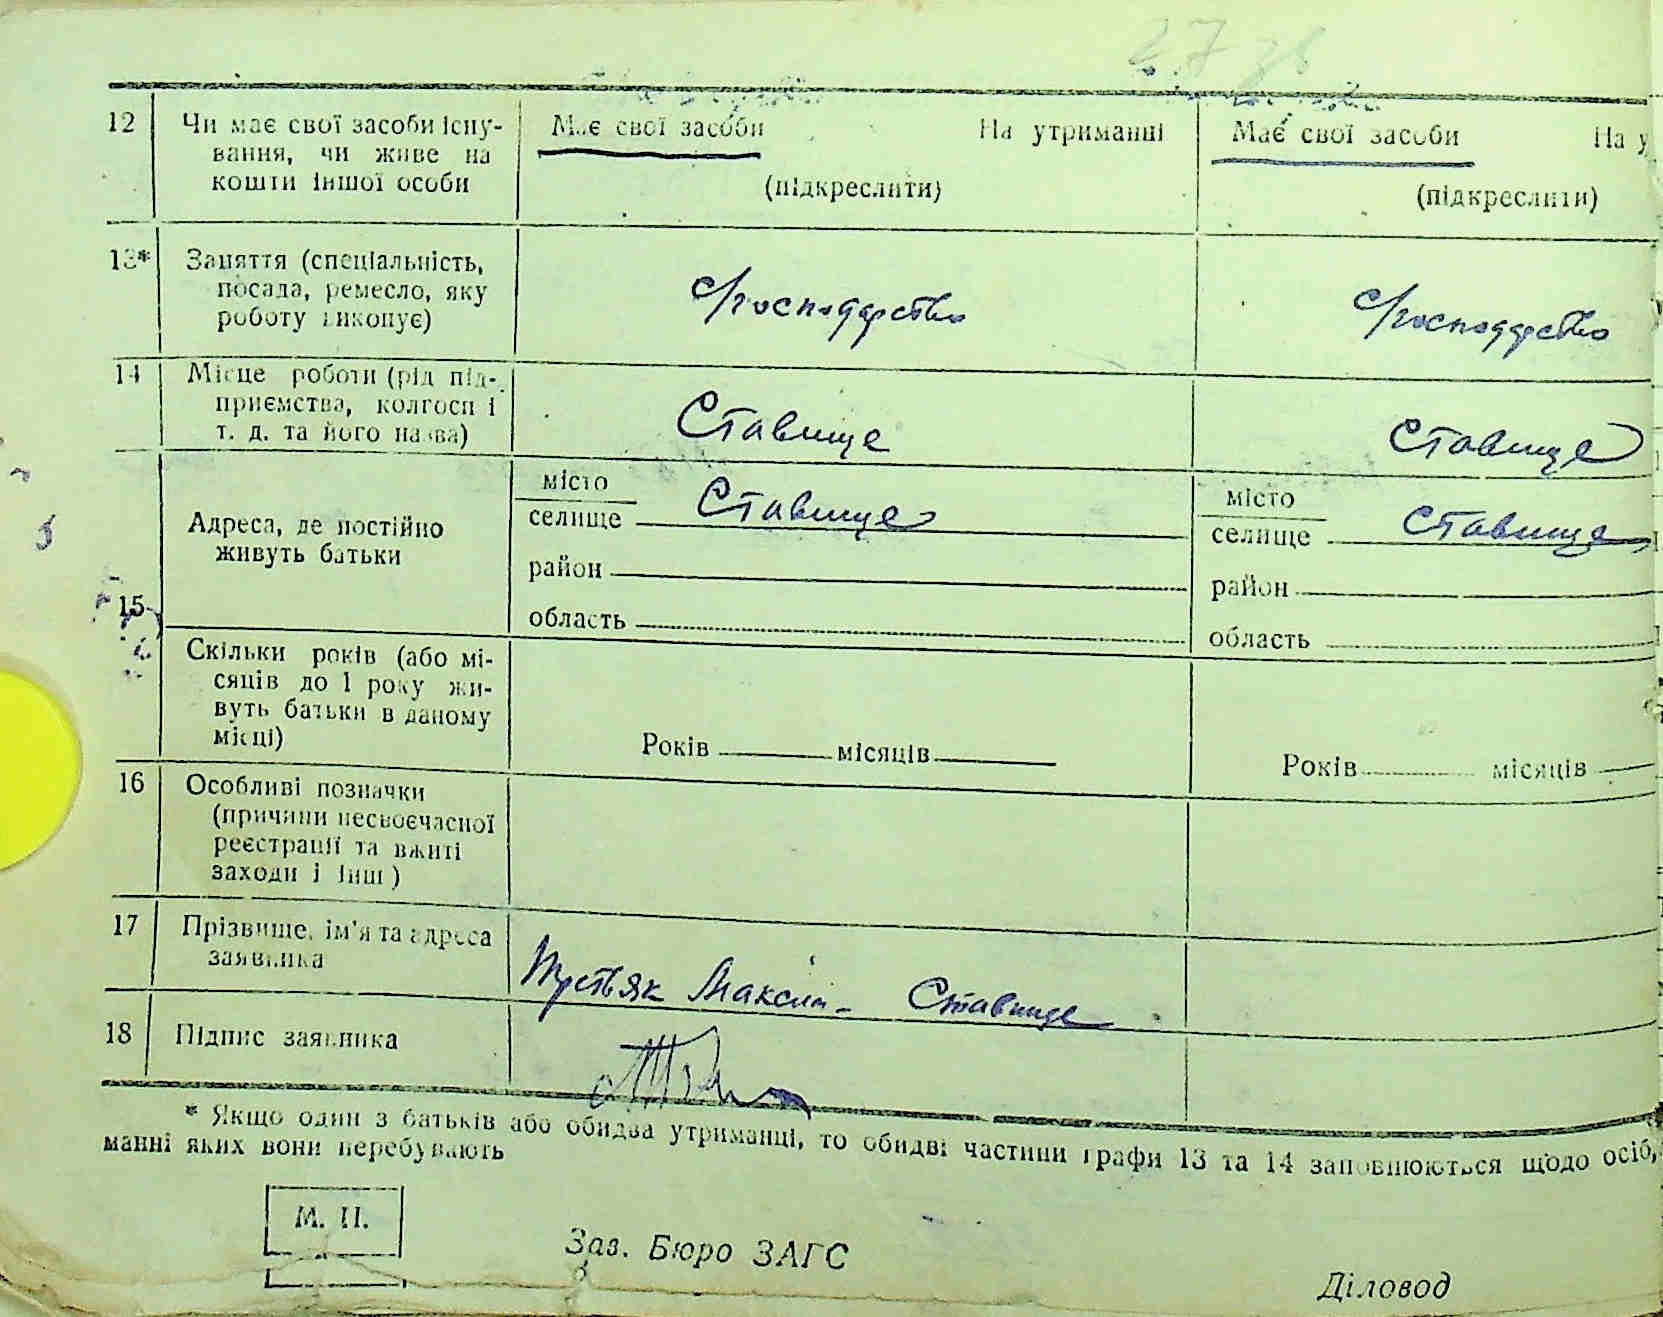 12 Чи має свої засоби існу- Має свої засоби На утриманні Має свої засоби На у
вання, чи живе на
кошти іншої особи (підкреслити) (підкреслити)
13* Заняття (спеціальність,
посада, ремесло, яку с/господарство с/господарство
роботу виконує)
14 Місце роботи (рід під-
приємства, колгосп і Ставище Ставище
т. д. та його назва)
15 Адреса, де постійно
живуть батьки
місто місто
селище Ставище селище Ставище
район район
область область
Скільки років (або мі-
сяців до 1 року жи-
вуть батьки в даному
місці) Років місяців Років місяців
16 Особливі позначки
(причини несвоєчасної
реєстрації та вжиті
заходи і інш)
17 Прізвище, ім'я та адреса
заявника Максим - Ставище
18 Підпис заявника
* Якщо один з батьків або обидва утриманці, то обидві частини графи 13 та 14 заповнюються щодо осіб,
манні яких вони перебувають
М. П.
Зав. Бюро ЗАГС
Діловод